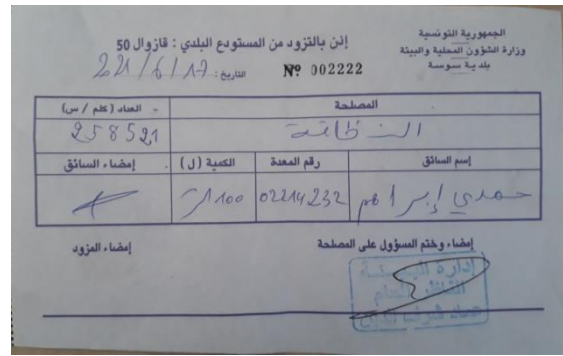 الجمهورية التونسية
وزارة الشؤون المحلية والبيئة
بلدية سوسة
إذن بالتزود من المستودع البلدي : قازوال 50
Nº 002222
التاريخ : 21/6/17
المصلحة
العداد ( كلم / س)
النظافة
258521
إسم السائق
رقم المعدة
الكمية ( ل )
إمضاء السائق
حمدي إبراهم
02214232
100 ل
إمضاء وختم المسؤول على المصلحة
إمضاء المزود
إدارة